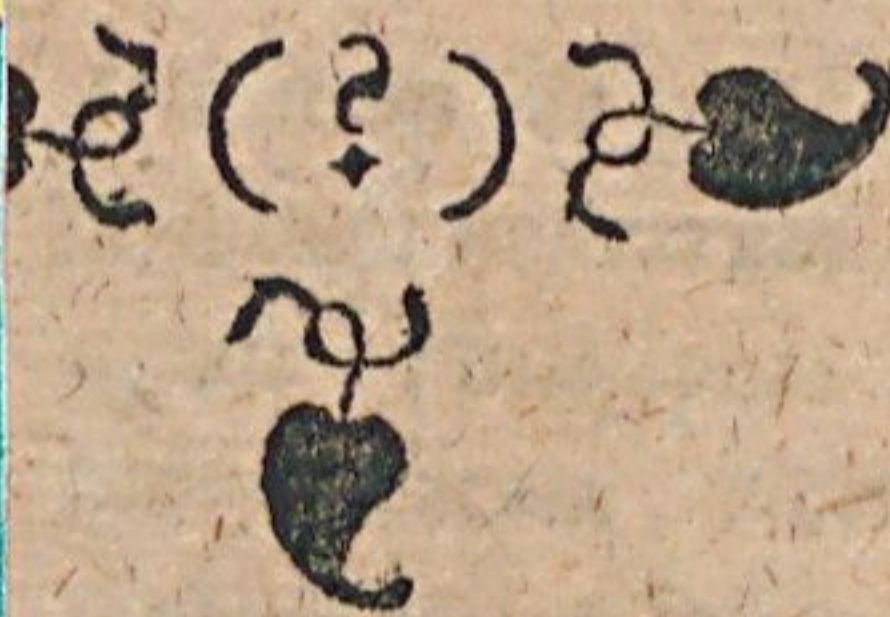 ❧ (?) ❧
❧